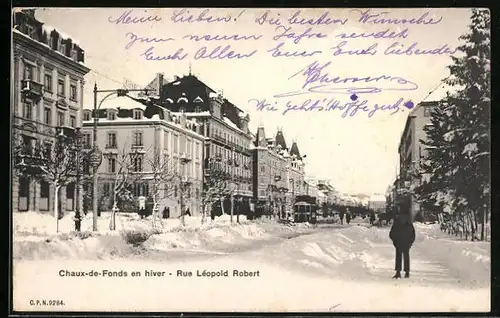 Meine Lieben! Die besten Wünsche
zum neuen Jahre sendet
Euch Allen Euer Euch liebender
Wie geht's? Hoffe gut
Chaux-de-Fonds en hiver - Rue Léopold Robert
C. P. N. 9264.